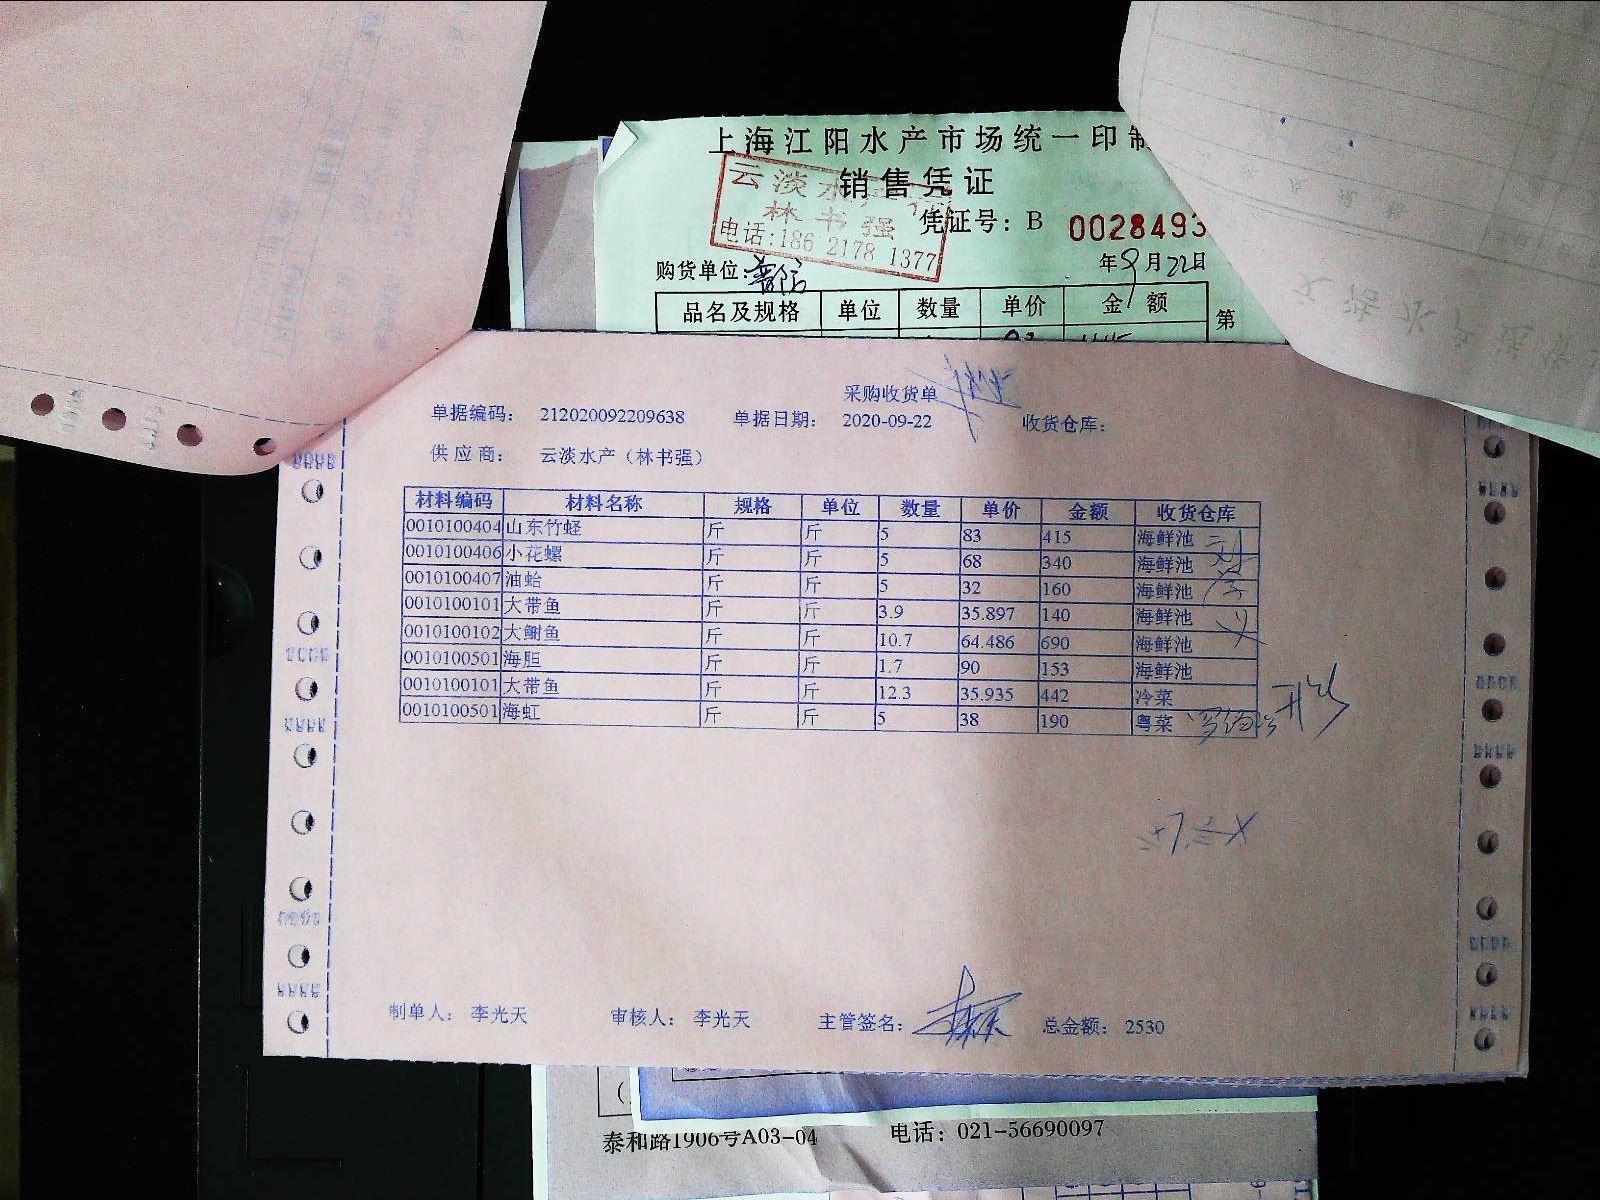 上海江阳水产市场统一印制
销售凭证
云淡水产
林书强
电话:186 2178 1377
凭证号: B 0028493
购货单位:
年9月22日
品名及规格 单位 数量 单价 金额 第
采购收货单
单据编码: 212020092209638 单据日期: 2020-09-22 收货仓库:
供应商: 云淡水产（林书强）
材料编码 材料名称 规格 单位 数量 单价 金额 收货仓库
0010100404 山东竹蛏 斤 斤 5 83 415 海鲜池
0010100406 小花螺 斤 斤 5 68 340 海鲜池
0010100407 油蛤 斤 斤 5 32 160 海鲜池
0010100101 大带鱼 斤 斤 3.9 35.897 140 海鲜池
0010100102 大鲥鱼 斤 斤 10.7 64.486 690 海鲜池
0010100501 海胆 斤 斤 1.7 90 153 海鲜池
0010100101 大带鱼 斤 斤 12.3 35.935 442 冷菜
0010100501 海虹 斤 斤 5 38 190 粤菜
制单人: 李光天 审核人: 李光天 主管签名: 总金额: 2530
泰和路1906号A03-04 电话: 021-56690097